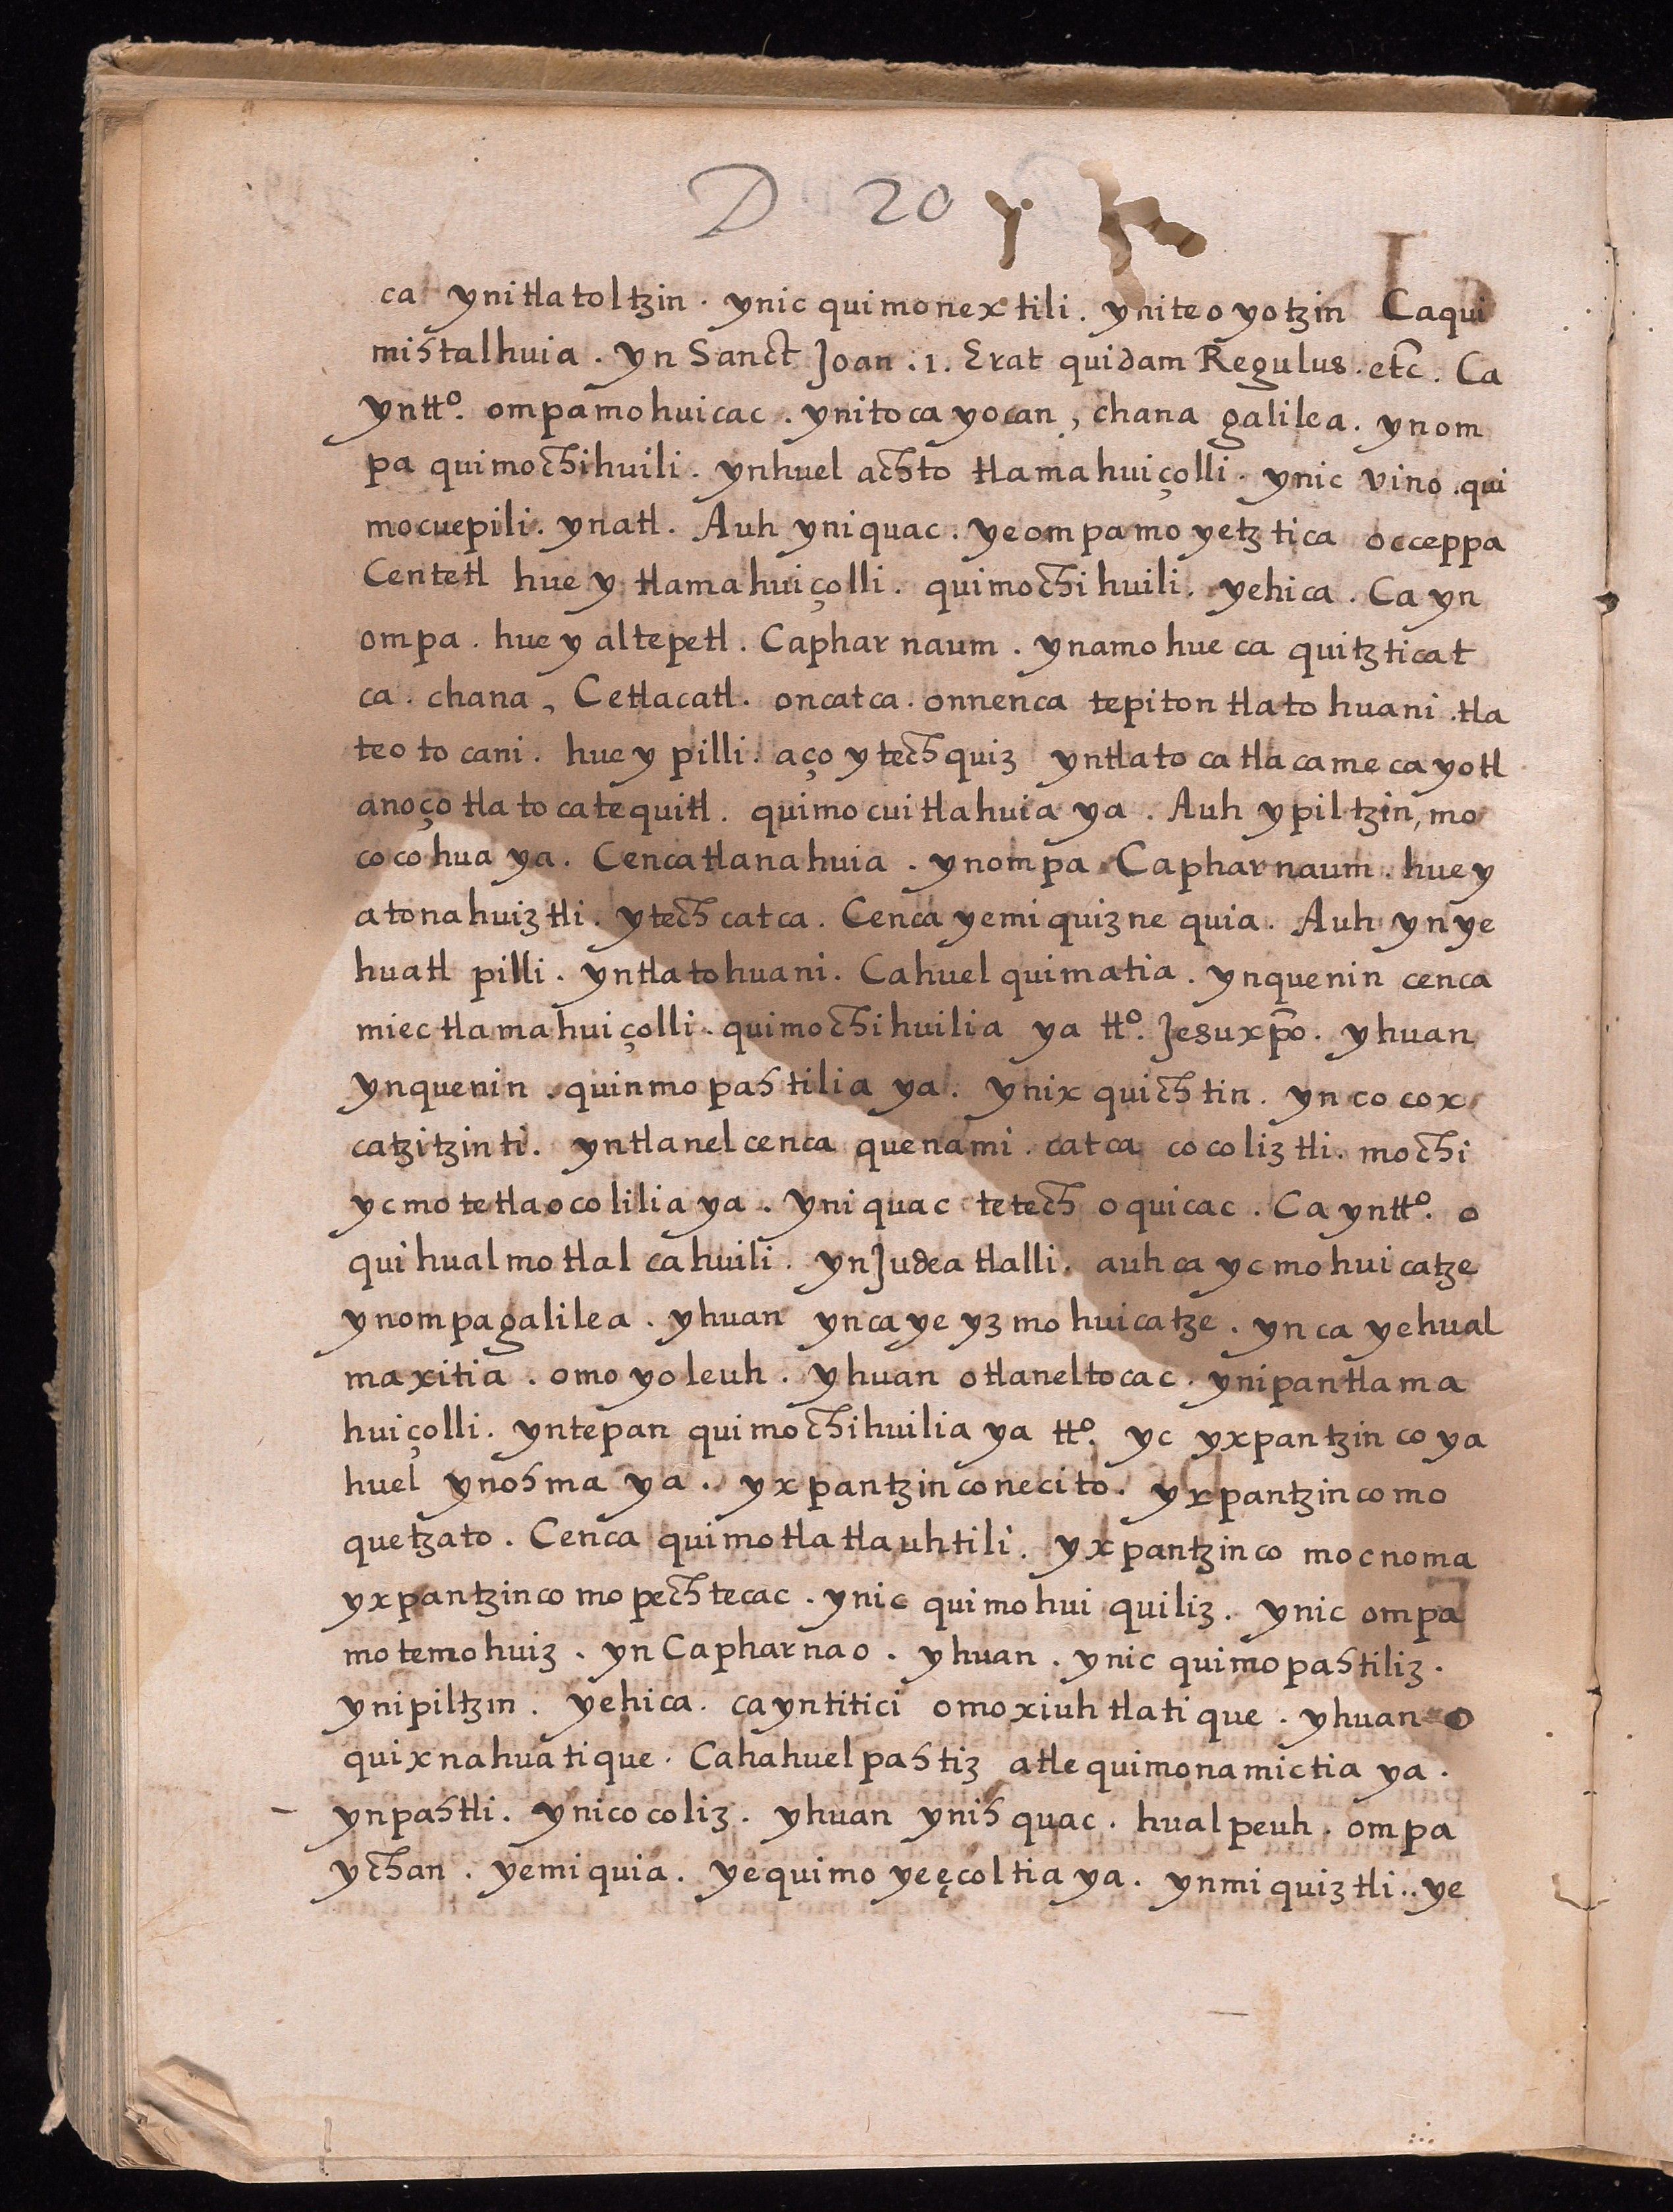 D 20 y p
ca ynitlatoltzin . ynic quimonextili . yniteoyotzin Caqui
mihtalhuia . yn Sanct Joan . 1 . Erat quidam Regulus . etc . Ca
yntto. ompamohuicac . ynitocayocan , chana galilea . ynom
pa quimochihuili . ynhuel achto tlamahuiçolli . ynic vino . qui
mocuepili . ynatl . Auh yniquac . yeompamoyetztica occeppa
Centetl huey tlamahuiçolli . quimochihuili . yehica . Ca yn
ompa . huey altepetl . Capharnaum . ynamohueca quitzticat
ca . chana , Cetlacatl . oncatca . onnenca tepiton tlatohuani . tla
teotocani . huey pilli . aço ytechquiz yntlatocatlacamecayotl
anoço tlatocatequitl . quimocuitlahuiaya . Auh ypiltzin , mo
cocohuaya . Cencatlanahuia . ynompa Capharnaum . huey
atonahuiztli . ytech catca . Cenca yemiquiznequia . Auh ynye
huatl pilli . yntlatohuani . Cahuel quimatia . ynquenin cenca
miectlamahuiçolli . quimochihuilia ya tto. Jesuxpo . yhuan
ynquenin . quinmopahtilia ya . ynixquichtin . yn cocox
catzitzinti . yntlanel cenca quenami . catca cocoliztli . mochi
ycmotetlaocolilia ya . yniquac tetech oquicac . Ca yntto. o
quihualmotlalcahuili . ynJudea tlalli . auh ca ycmohuicatze
ynompagalilea . yhuan yncaye yz mohuicatze . ynca yehual
maxitia . omoyoleuh . yhuan otlaneltocac . ynipantlama
huiçolli . yntepan quimochihuilia ya tto. yc yxpantzinco ya
huel ynohma ya . yxpantzinconecito . yxpantzincomo
quetzato . Cenca quimotlatlauhtili . yxpantzinco mocnoma
yxpantzinco mopechtecac . ynic quimohuiquiliz . ynic ompa
motemohuiz . yn Capharnao . yhuan . ynic quimopahtiliz .
ynipiltzin . yehica . cayntitici omoxiuhtlatique . yhuan o
quixnahuatique . Cahahuelpahtiz atlequimonamictia ya .
ynpahtli . ynicocoliz . yhuan ynihquac . hualpeuh . ompa
ychan . yemiquia . yequimoyeęcoltia ya . ynmiquiztli . . ye